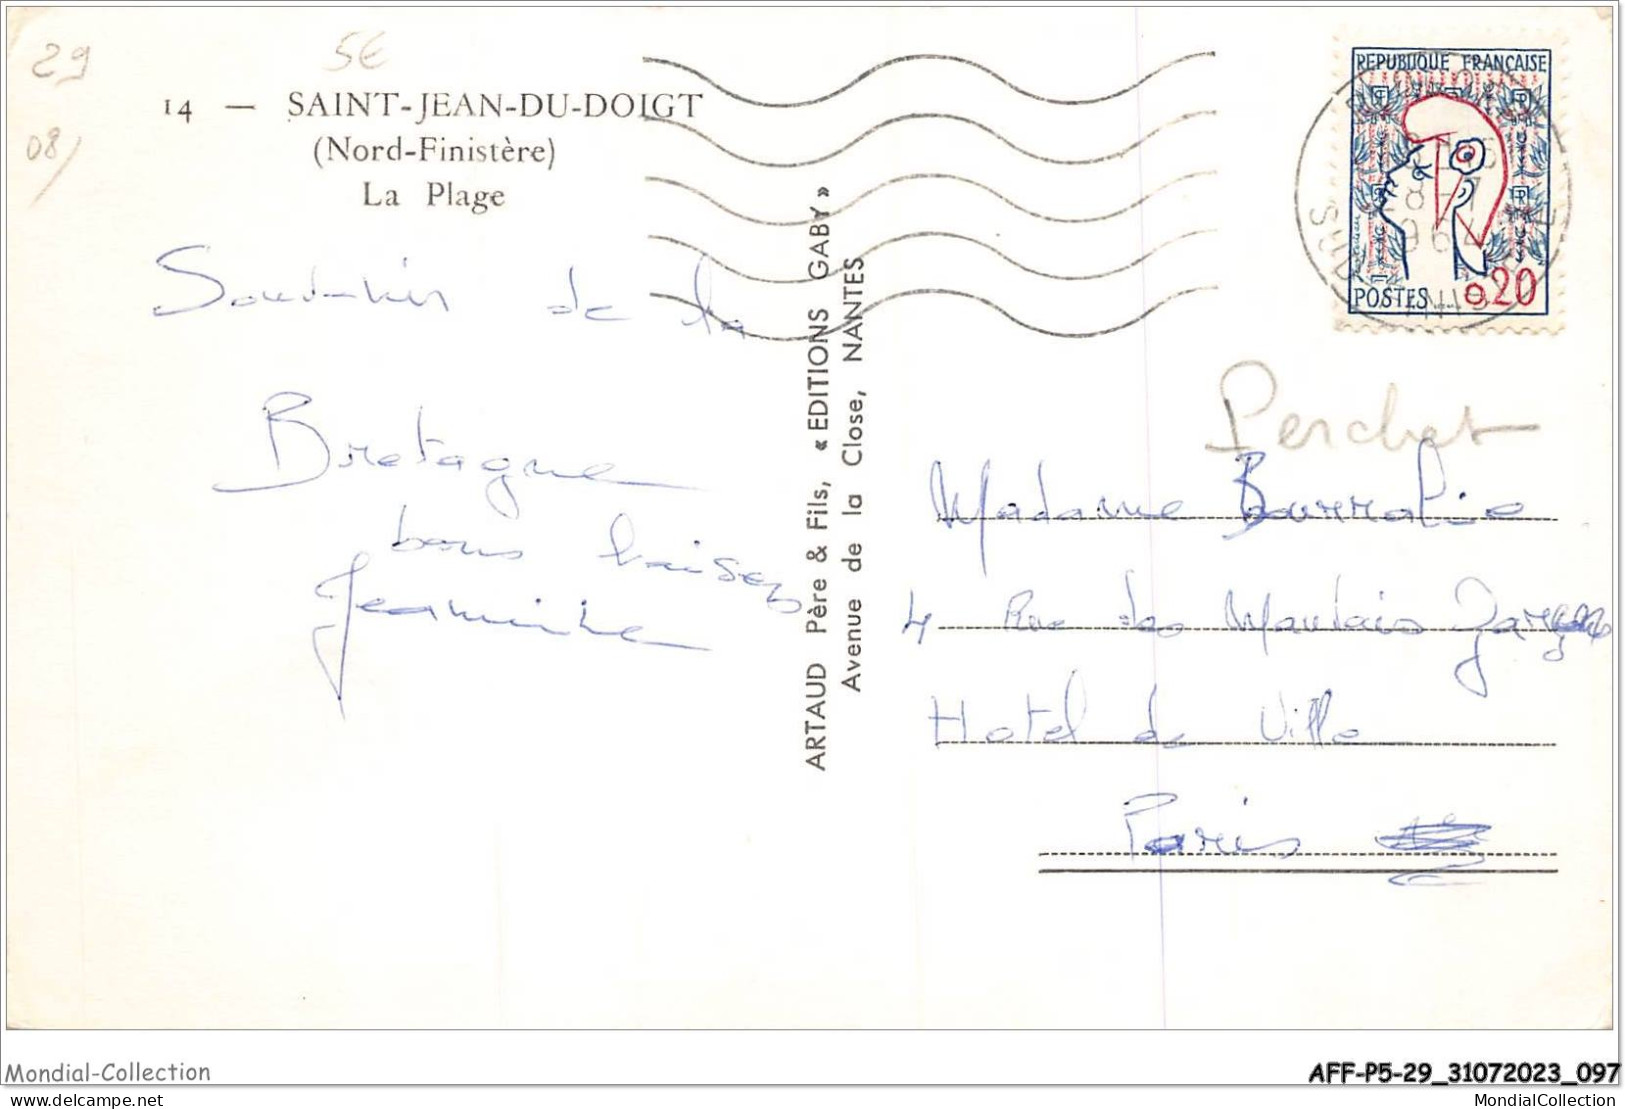 29
5€
08/
14 — SAINT-JEAN-DU-DOIGT
(Nord-Finistère)
La Plage
Souvenir de la
Bretagne
bons baisers
Jeannine
ARTAUD Père & Fils, « EDITIONS GABY »
Avenue de la Close, NANTES
REPUBLIQUE FRANÇAISE
28-7
1964
POSTES 0,20
Perchat
Madame
4 Rue des Mauvais Garçons
Hotel de Ville
Paris
Mondial-Collection
AFF-P5-29_31072023_097
delcampe.net
MondialCollection